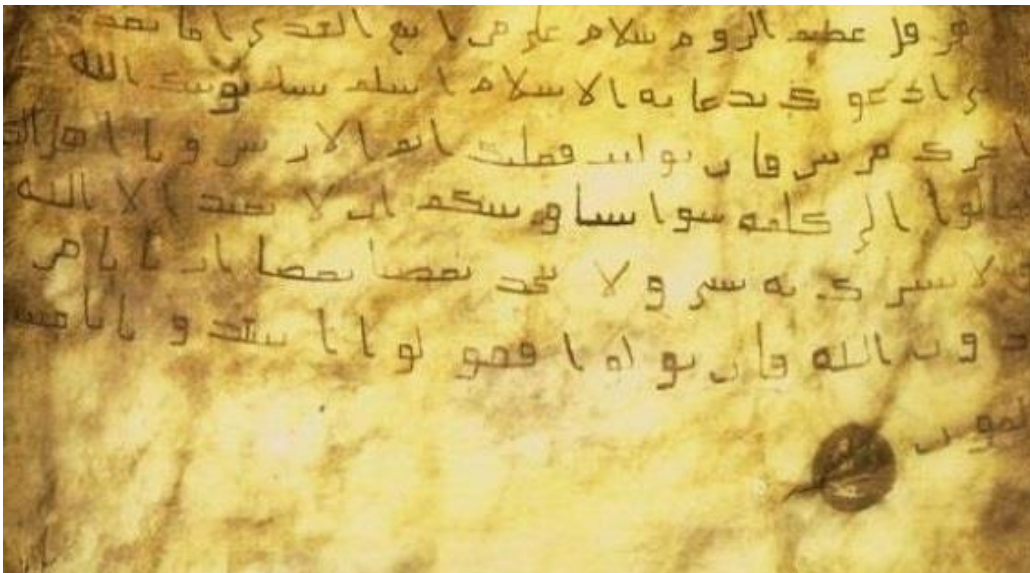 هرقل عظيم الروم سلام على من اتبع الهدى اما بعد
ادعوك بدعاية الاسلام اسلم تسلم يوتك الله
اجرك مرتين فان توليت فعليك اثم الاريسين و يا اهل الكتا
تعالوا الى كلمة سوا بيننا وبينكم ان لا نعبد الا الله
و لا نشرك به شي و لا يتخذ بعضنا بعضا اربابا من
دون الله فان تولوا فقولوا اشهدوا بانا مسـ
لمون